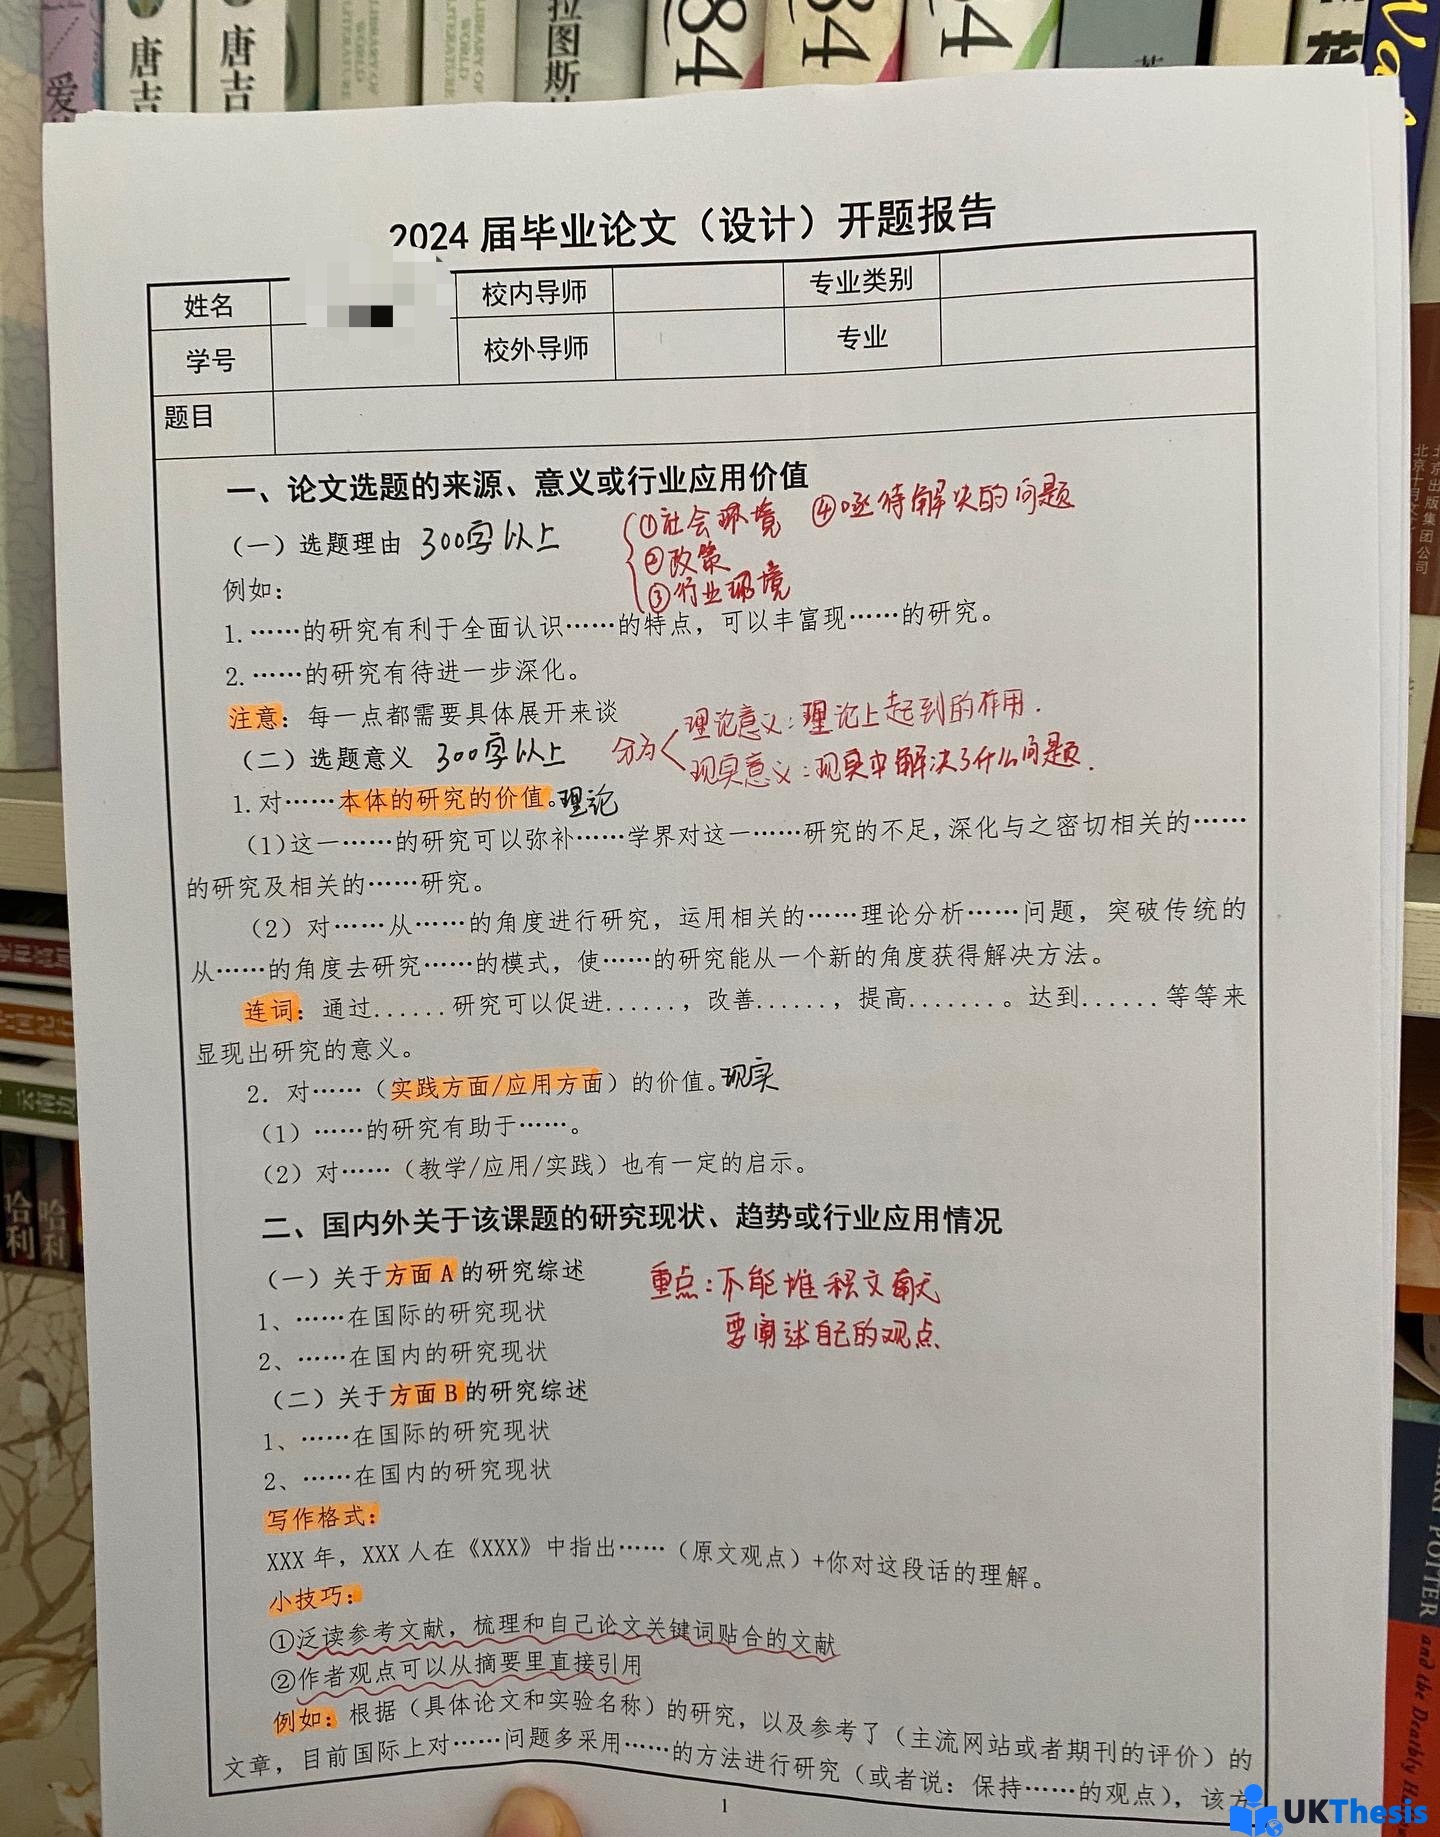 爱
唐吉
唐吉
LIBRARY OF WORLD LITERATURE
LIBRARY OF WORLD LITERATURE
拉图斯
84
84
84
花
2024 届毕业论文（设计）开题报告
姓名 校内导师 专业类别
学号 校外导师 专业
题目
一、论文选题的来源、意义或行业应用价值
（一）选题理由 300字以上 ①社会环境 ④亟待解决的问题
②政策
例如： ③行业环境
1.……的研究有利于全面认识……的特点，可以丰富现……的研究。
2.……的研究有待进一步深化。
注意：每一点都需要具体展开来谈
（二）选题意义 300字以上 分为 理论意义：理论上起到的作用.
现实意义：现实中解决了什么问题.
1.对……本体的研究的价值。理论
（1）这一……的研究可以弥补……学界对这一……研究的不足，深化与之密切相关的……
的研究及相关的……研究。
（2）对……从……的角度进行研究，运用相关的……理论分析……问题，突破传统的
从……的角度去研究……的模式，使……的研究能从一个新的角度获得解决方法。
连词：通过......研究可以促进......，改善......，提高.......。达到......等等来
显现出研究的意义。
2. 对……（实践方面/应用方面）的价值。现实
（1）……的研究有助于……。
（2）对……（教学/应用/实践）也有一定的启示。
二、国内外关于该课题的研究现状、趋势或行业应用情况
（一）关于方面 A 的研究综述 重点：不能堆积文献
1、……在国际的研究现状 要阐述自己的观点
2、……在国内的研究现状
（二）关于方面 B 的研究综述
1、……在国际的研究现状
2、……在国内的研究现状
写作格式：
XXX 年，XXX 人在《XXX》中指出……（原文观点）+你对这段话的理解。
小技巧：
①泛读参考文献，梳理和自己论文关键词贴合的文献
②作者观点可以从摘要里直接引用
例如：根据（具体论文和实验名称）的研究，以及参考了（主流网站或者期刊的评价）的
文章，目前国际上对……问题多采用……的方法进行研究（或者说：保持……的观点），该方
1
哈利
哈利
北京出版集团公司
POTTER
and the Deathly
UKThesis